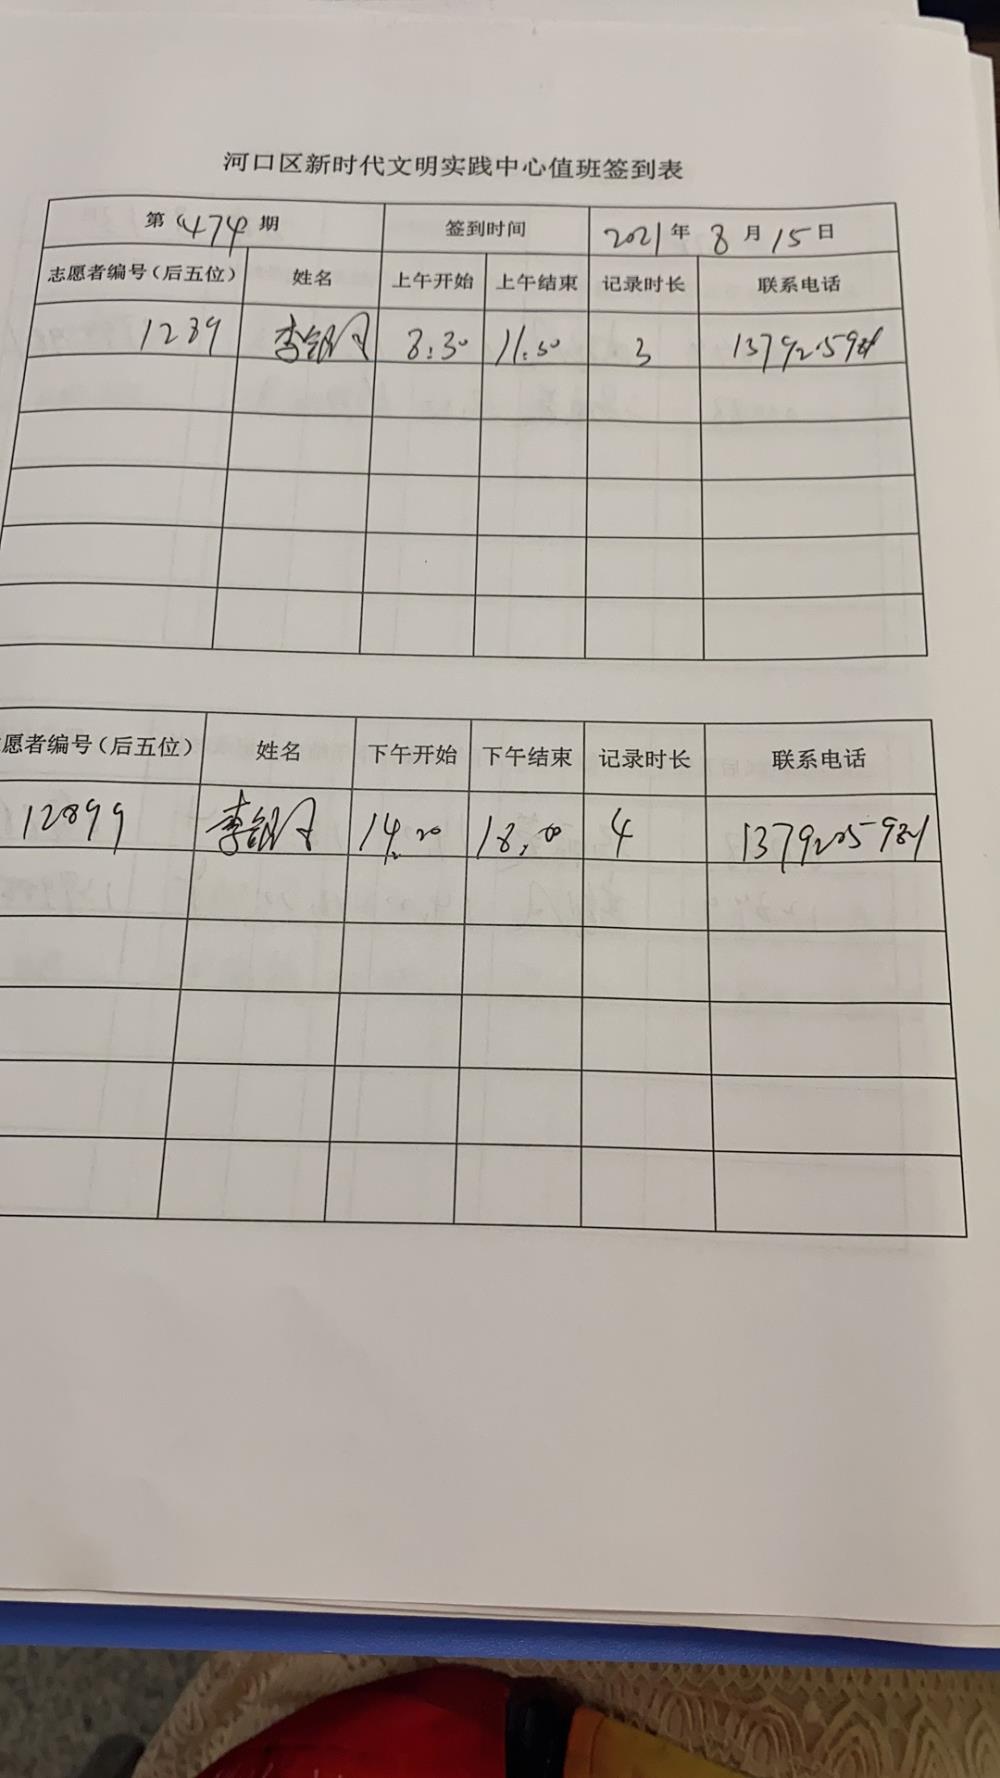 河口区新时代文明实践中心值班签到表
第 474 期 签到时间 2021年 8月15日
志愿者编号（后五位） 姓名 上午开始 上午结束 记录时长 联系电话
1289 李 8:30 11:30 3
愿者编号（后五位） 姓名 下午开始 下午结束 记录时长 联系电话
12899 李 18:00 4 13792059841